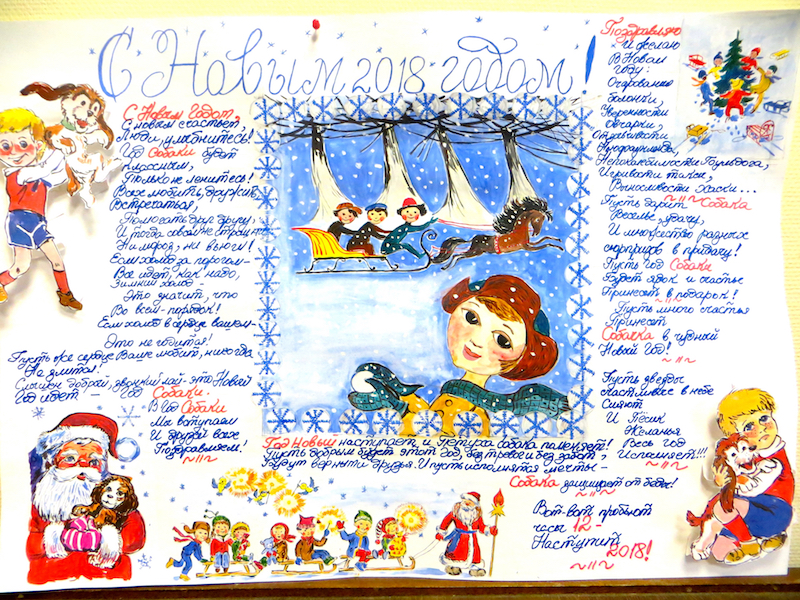 С Новым 2018 годом!
С Новым Годом,
С новым счастьем!
Люди, улыбнитесь!
Год Собаки будет
классным,
Только не ленитесь!
Вам любить, дружить,
Встречаться,
Помогать друг другу,
И тогда совсем не страшны
Ни мороз, ни вьюги!
Если холод за порогом –
Всё идет, как надо,
Зимний холод –
Это значит, что
Во всем – порядок!
Если холод в сердце вашем –
Это не годится!
Пусть же сердце Ваше любит, никогда
Не злится!
Слышен добрый, звонкий лай – это Новый
Год идет – Год Собаки.
В Год Собаки
Мы вступаем
И друзей всех
Поздравляем!
Год Новый наступает и петуха собака поменяет!
Пусть добрым будет этот год, без тревог и без забот
Будут верными друзья. И пусть исполнятся мечты –
Собака защищает от беды!
Вот-вот пробьют
часы 12 –
Наступит
2018!
Поздравляю
И желаю
В Новом
Году:
Очарования
болонки,
Уверенности
овчарки,
Отзывчивости
Ньюфаундленда,
Непоколебимости Бульдога,
Игривости таксы,
Выносливости Хаски...
Пусть дарит Собака
Веселье, удачу,
И множество разных
сюрпризов в придачу!
Пусть год Собаки
Будет ярок и счастье
Принесет в подарок!
Пусть много счастья
Принесет
Собачка в чудный
Новый Год!
Пусть звезды
счастливые в небе
Сияют
И Пёсик
Желанья
Весь год
Исполняет!!!